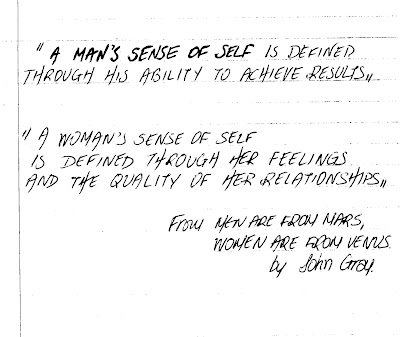 " A MAN'S SENSE OF SELF IS DEFINED
THROUGH HIS ABILITY TO ACHIEVE RESULTS„
" A WOMAN'S SENSE OF SELF
IS DEFINED THROUGH HER FEELINGS
AND THE QUALITY OF HER RELATIONSHIPS„
From MEN ARE FROM MARS,
WOMEN ARE FROM VENUS.
by John Gray.